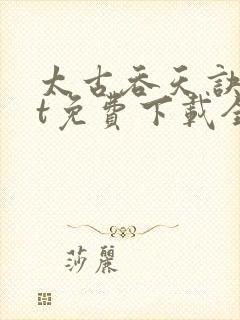 太古吞天訣
t免費下載全
莎麗